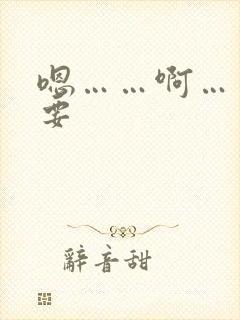 嗯……啊…
要
辭音甜